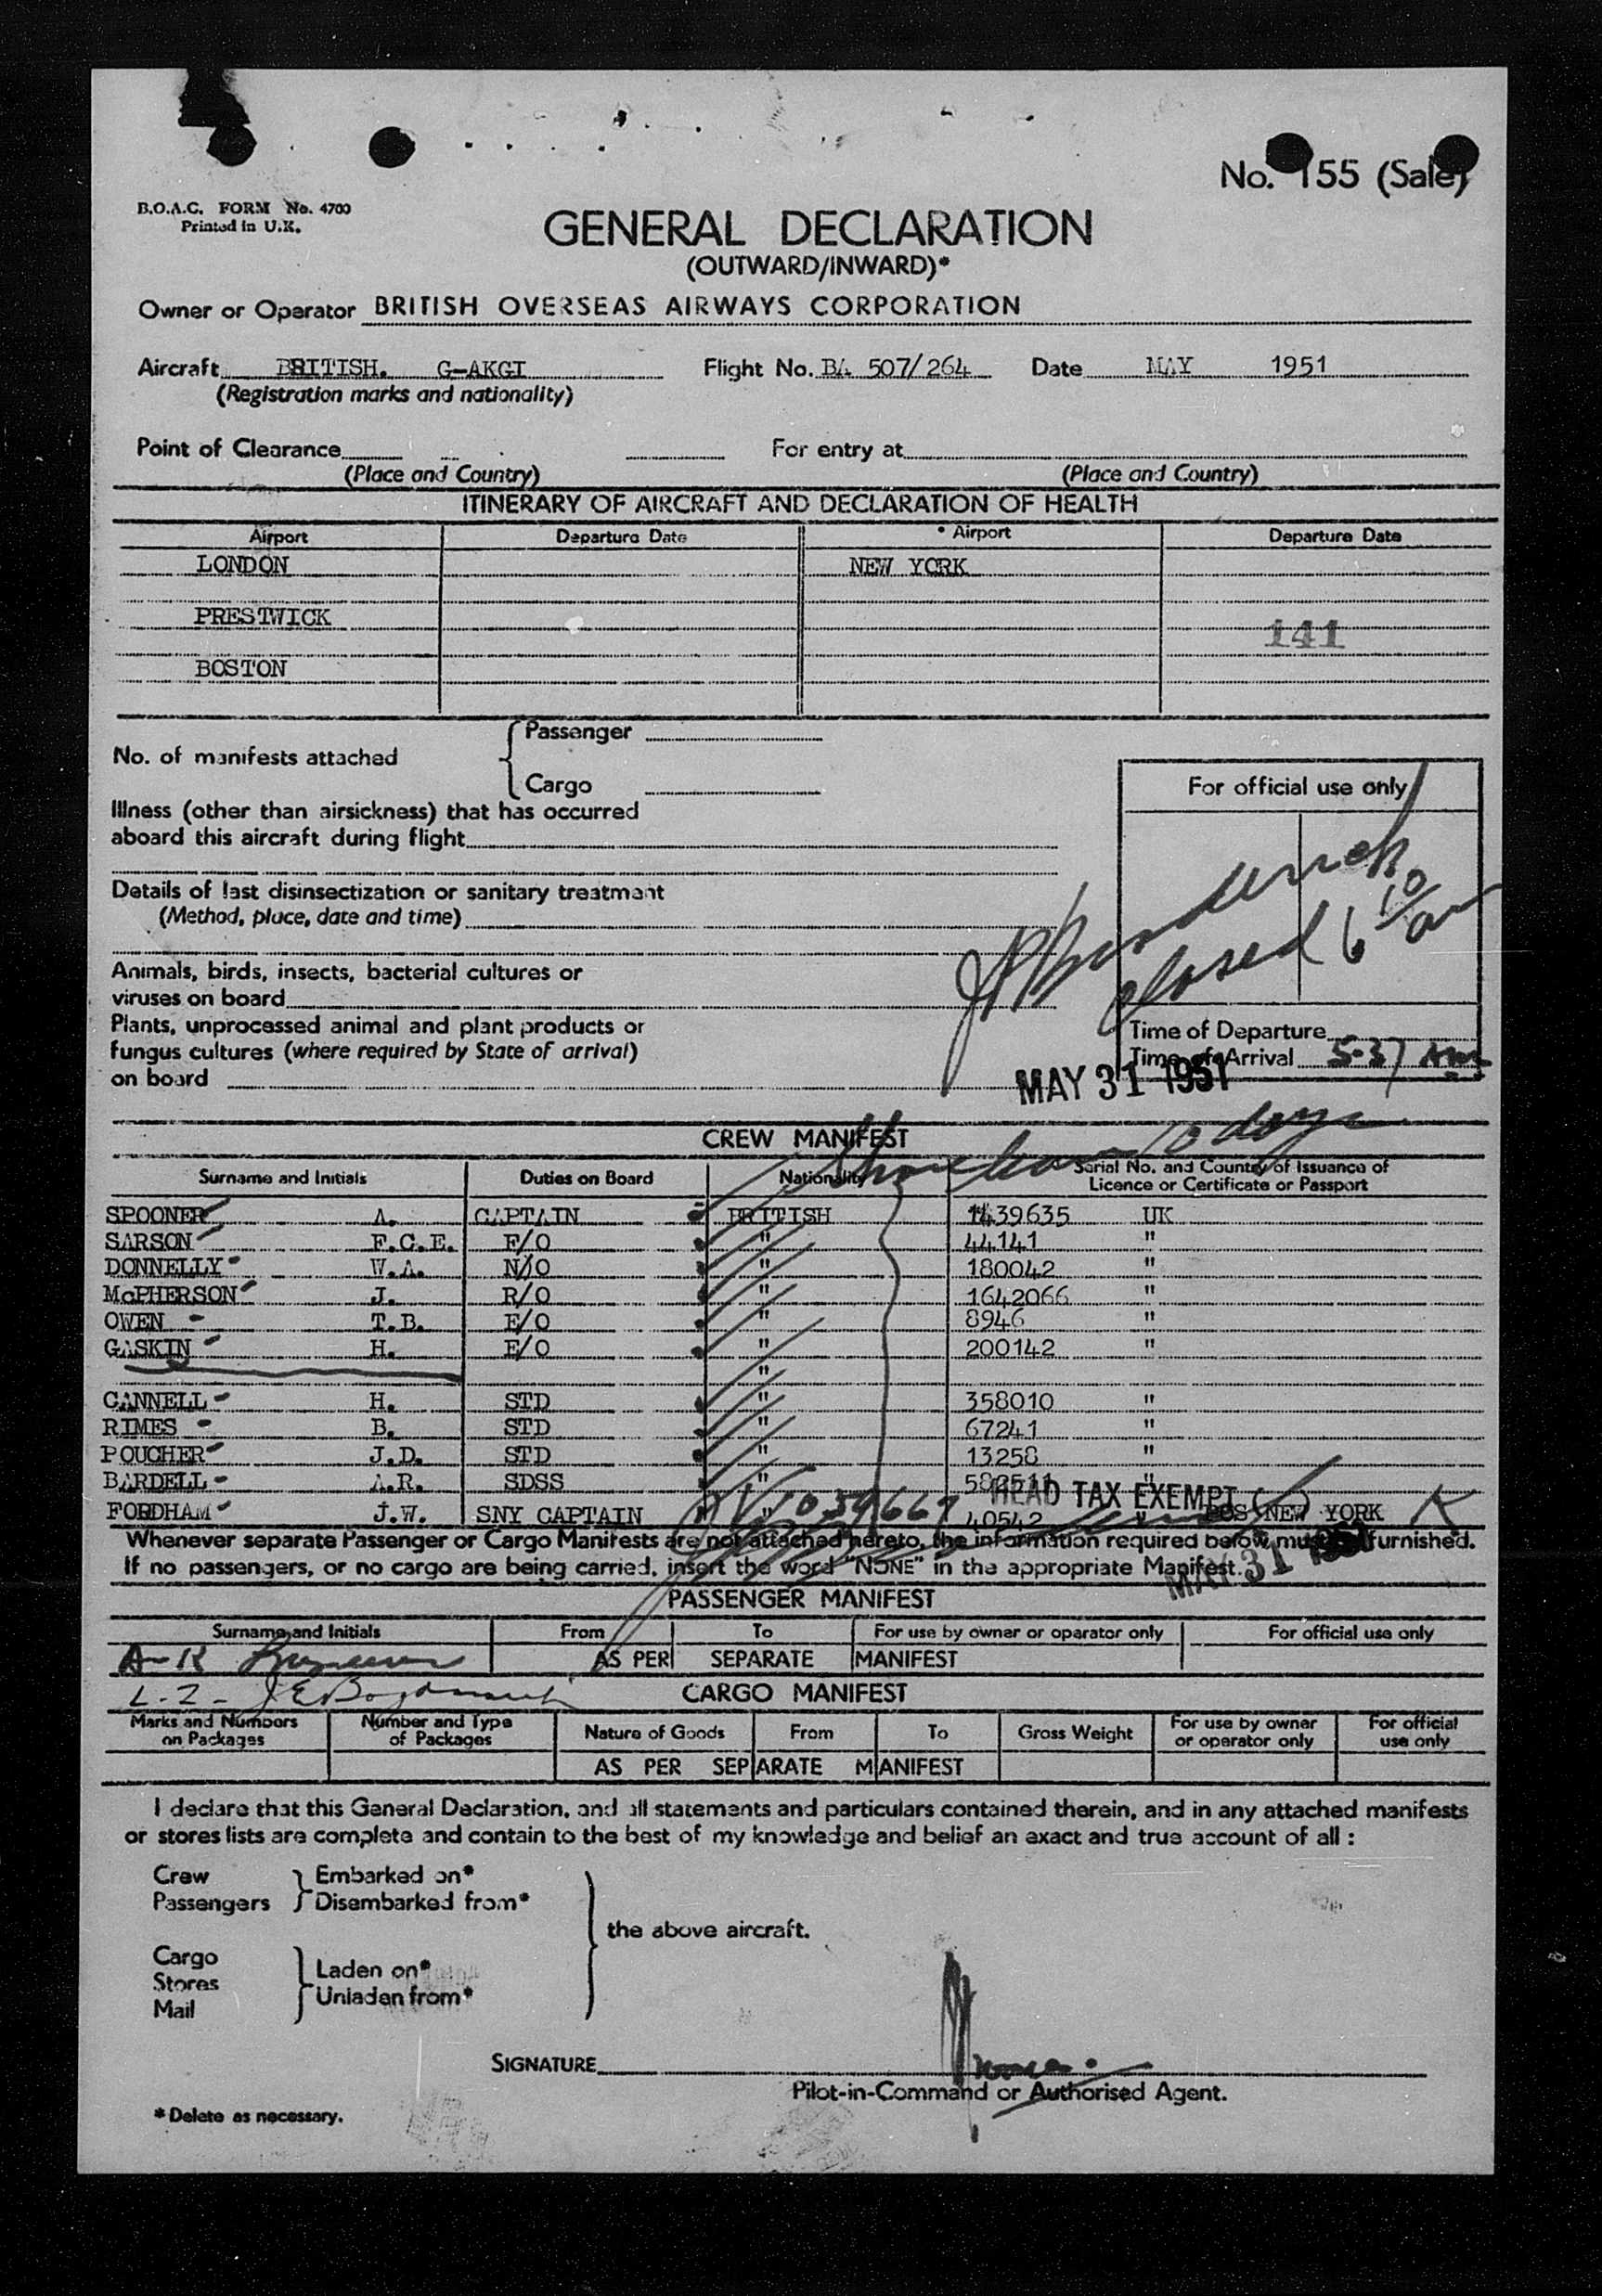 No. 155 (Sale)
B.O.A.C. FORM No. 4700
Printed in U.K.
GENERAL DECLARATION
(OUTWARD/INWARD)*
Owner or Operator BRITISH OVERSEAS AIRWAYS CORPORATION
Aircraft BRITISH. G-AKGI Flight No. BA 507/264 Date MAY 1951
(Registration marks and nationality)
Point of Clearance For entry at
(Place and Country) (Place and Country)
ITINERARY OF AIRCRAFT AND DECLARATION OF HEALTH
Airport Departure Date * Airport Departure Date
LONDON NEW YORK
PRESTWICK
141
BOSTON
No. of manifests attached { Passenger
Cargo
For official use only
Illness (other than airsickness) that has occurred
aboard this aircraft during flight
Details of last disinsectization or sanitary treatment
(Method, place, date and time)
closed 6 10/am
Animals, birds, insects, bacterial cultures or
viruses on board
Plants, unprocessed animal and plant products or
fungus cultures (where required by State of arrival)
on board
Time of Departure
Time of Arrival 5-37 Am
MAY 31 1951
CREW MANIFEST
10 days
Surname and Initials Duties on Board Nationality Serial No. and Country of Issuance of
Licence or Certificate or Passport
SPOONER A. CAPTAIN BRITISH 1439635 UK
SARSON F.C.E. F/O " 44141 "
DONNELLY W.A. N/O " 180042 "
McPHERSON J. R/O " 1642066 "
OWEN T.B. E/O " 8946 "
GASKIN H. E/O " 200142 "
"
CANNELL H. STD " 358010 "
RIMES B. STD " 67241 "
POUCHER J.D. STD " 13258 "
BARDELL A.R. SDSS " 582511 "
HEAD TAX EXEMPT
FORDHAM J.W. SNY CAPTAIN " 40542 " BOS NEW YORK K
V1039667
Whenever separate Passenger or Cargo Manifests are not attached hereto, the information required below must be furnished.
If no passengers, or no cargo are being carried, insert the word "NONE" in the appropriate Manifest.
MAY 31 1951
PASSENGER MANIFEST
Surname and Initials From To For use by owner or operator only For official use only
A-K AS PER SEPARATE MANIFEST
L-Z-
CARGO MANIFEST
Marks and Numbers on Packages Number and Type of Packages Nature of Goods From To Gross Weight For use by owner or operator only For official use only
AS PER SEPARATE MANIFEST
I declare that this General Declaration, and all statements and particulars contained therein, and in any attached manifests
or stores lists are complete and contain to the best of my knowledge and belief an exact and true account of all :
Crew } Embarked on*
Passengers } Disembarked from*
the above aircraft.
Cargo
Stores } Laden on*
Mail } Unladen from*
SIGNATURE
Pilot-in-Command or Authorised Agent.
* Delete as necessary.